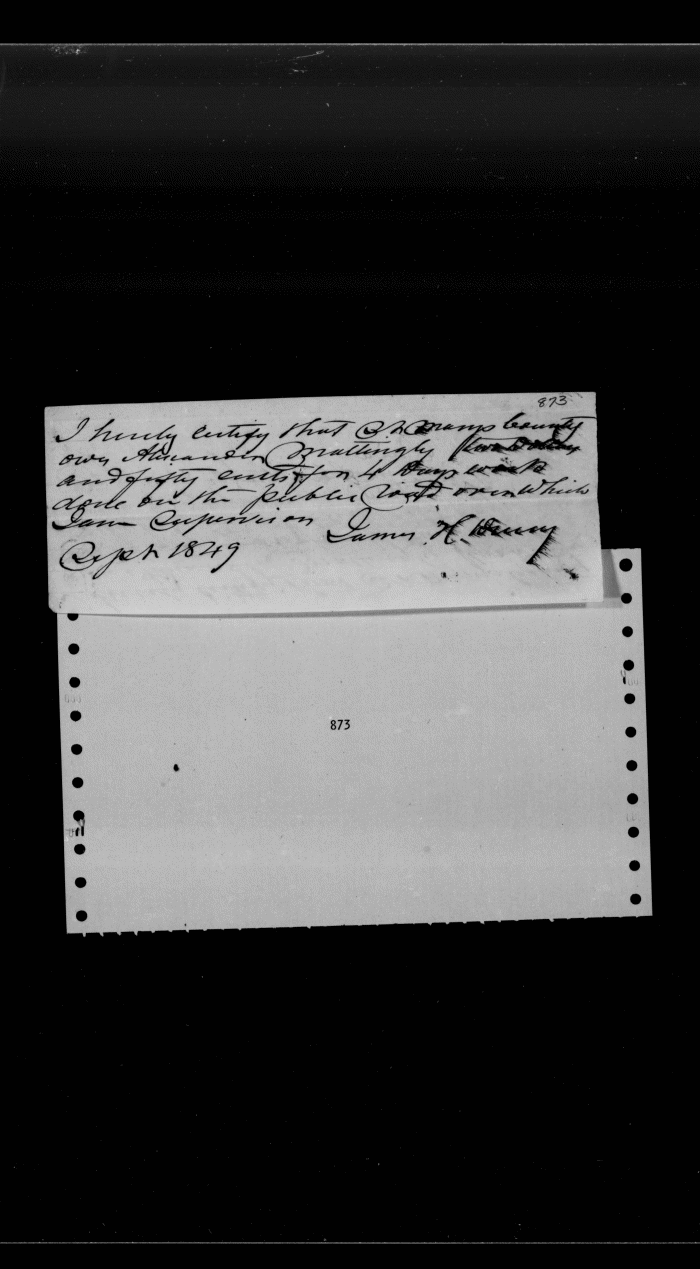 873
I hereby certify that St Marys County
owes Alexander Mattingly two Dollars
and fifty cents for 4 Days work
done on the public road over which
I am Supervisor
James H.
Sept 1849
873